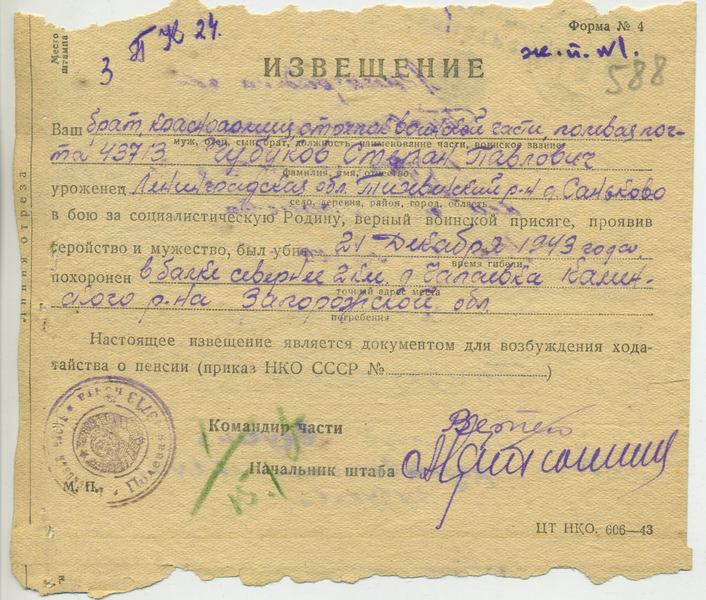 Место штампа
Форма № 4
588
ИЗВЕЩЕНИЕ
Ваш брат, красноармеец стрелок воинской части, полевая поч-
муж, сын, брат, должность, наименование части, воинское звание
та 45713 Степан Павлович
фамилия, имя, отчество
уроженец Ленинградская обл. Тихвинский р-н д. Саньково
село, деревня, район, город, область
в бою за социалистическую Родину, верный воинской присяге, проявив
геройство и мужество, был убит 21 Декабря 1943 года,
время гибели
похоронен в балке севернее 2 км. д. Чапаевка Камен-
точный адрес места
ского р-на Запорожской обл
погребения
Настоящее извещение является документом для возбуждения хода-
тайства о пенсии (приказ НКО СССР №
)
Командир части
Начальник штаба
М. П.
ЦТ НКО. 606—43
Линия отреза